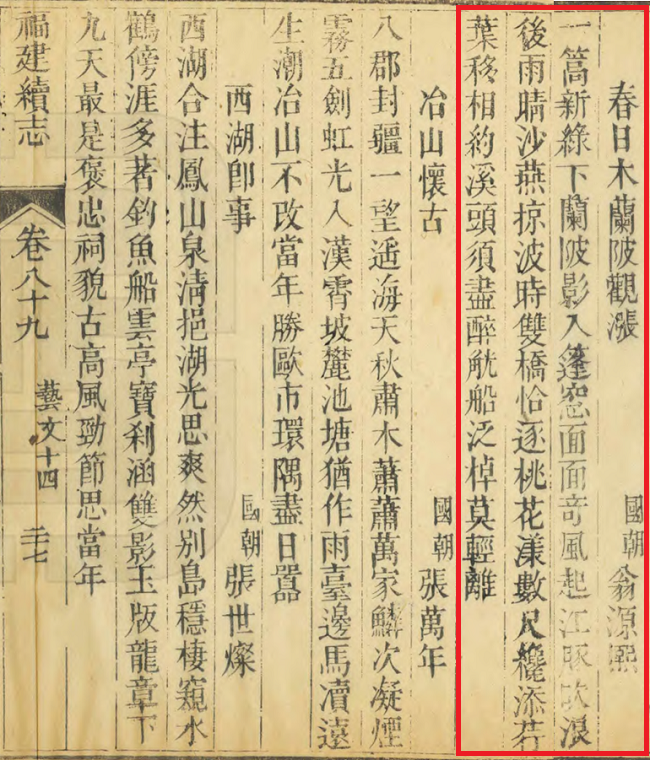 春日木蘭陂觀漲 國朝 翁源熙
一篙新綠下蘭陂影入篷窓面面奇風起江豚吹浪
後雨晴沙燕掠波時雙橋恰逐桃花漾數尺纔添荇
葉移相約溪頭須盡醉觥船泛棹莫輕離
冶山懷古 國朝 張萬年
八郡封疆一望遥海天秋肅木蕭蕭萬家鱗次凝煙
霧五劍虹光入漢霄坡麓池塘猶作雨臺邊馬瀆遠
生潮冶山不改當年勝歐市環隅盡日囂
西湖卽事 國朝 張世燦
西湖合注鳳山泉清挹湖光思爽然别島穩棲窺水
鶴傍涯多著釣魚船雲亭寶刹涵雙影玉版龍章下
九天最是褒忠祠貌古高風勁節思當年
福建續志 卷八十九 藝文十四 三七